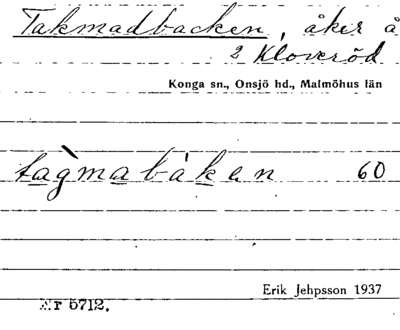 Takmadbacken, åker å
2 Kloveröd
Konga sn., Onsjö hd., Malmöhus län
tag̀mabàken 60
Erik Jehpsson 1937
Nr 5712.